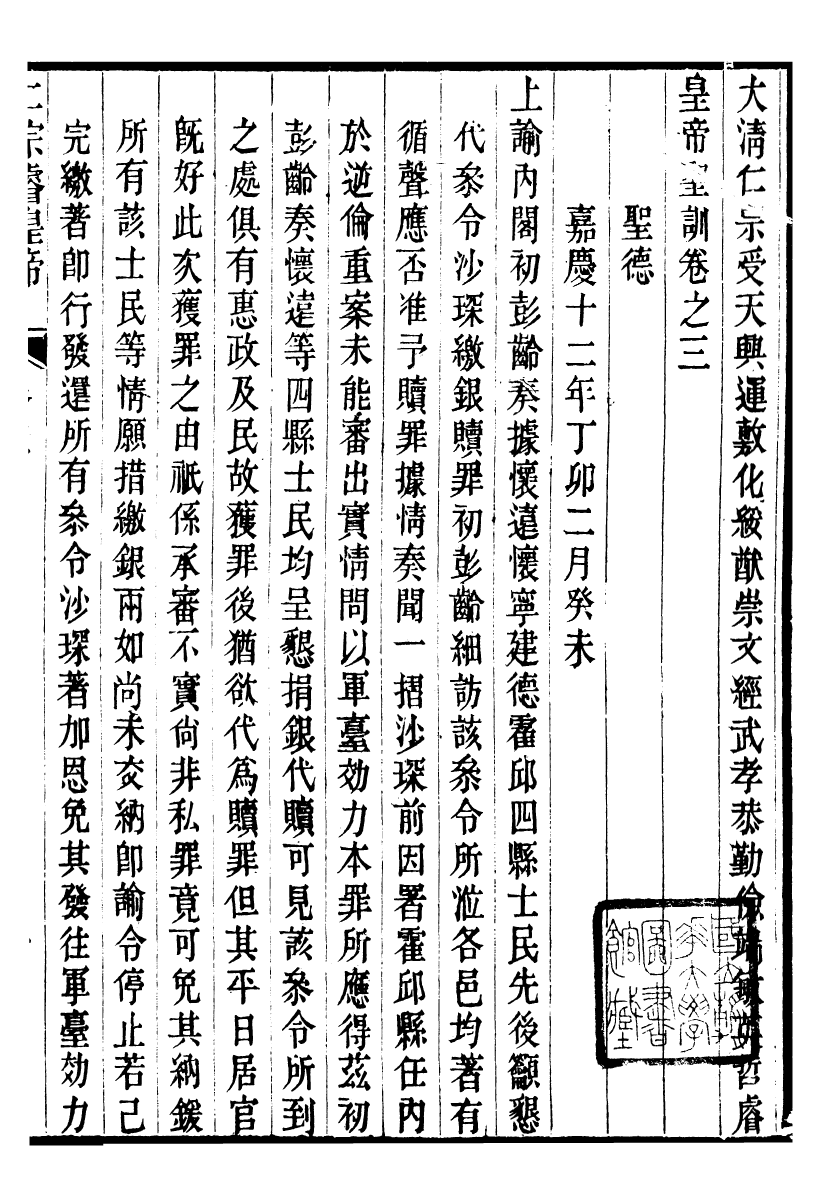 大淸仁宗受天興運敷化綏猷崇文經武孝恭勤儉端敏英哲睿
皇帝聖訓卷之三
聖德
嘉慶十二年丁卯二月癸未
上諭內閣初彭齡奏據懷遠懷寧建德霍邱四縣士民先後籲懇
代叅令沙琛繳銀贖罪初彭齡細訪該叅令所涖各邑均著有
循聲應否准予贖罪據情奏聞一摺沙琛前因署霍邱縣任內
於逆倫重案未能審出實情問以軍臺効力本罪所應得茲初
彭齡奏懷遠等四縣士民均呈懇捐銀代贖可見該叅令所到
之處俱有惠政及民故獲罪後猶欲代爲贖罪但其平日居官
旣好此次獲罪之由祇係承審不實尙非私罪竟可免其納鍰
所有該士民等情願措繳銀兩如尙未交納卽諭令停止若已
完繳著卽行發還所有叅令沙琛著加恩免其發往軍臺効力
仁宗睿皇帝
國立清華大學圖書館藏